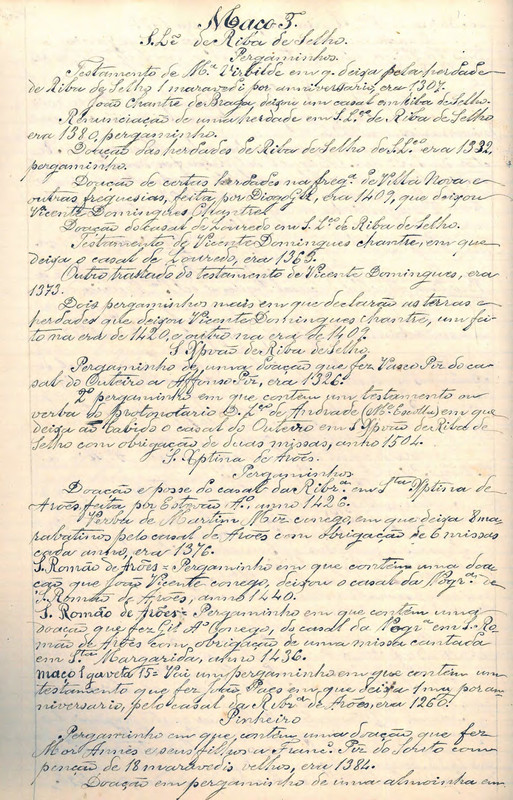 Maço 3.
S. Lço de Riba de Selho.
Pergaminhos.
Testamento de Mª em q. deixa pela herdade
de Riba de Selho 1 maravedi por anniversario, era 1307.
João Chantre de Braga, deixou um casal em Riba de Selho.
Renunciação de uma herdade em S. Lço de Riba de Selho
era 1380, pergaminho.
Doação das herdades de Riba de Selho de S. Lço era 1332,
pergaminho.
Doação de certas herdades na fregª de Villa Nova e
outras freguesias, feita por Diogo Gil, era 1409, que deixou
Vicente Domingues Chantre.
Doação do casal de Louredo em S. Lço de Riba de Selho.
Testamento de Vicente Domingues chantre, em que
deixa o casal de Louredo, era 1363.
Outro traslado do testamento de Vicente Domingues, era
1373.
Dois pergaminhos mais em que declarão as terras e
herdades que deixou Vicente Domingues chantre, um fei-
to na era de 1420, e outro na era de 1409.
S. Xpvão de Riba de Selho.
Pergaminho de uma doação que fez Vasco Piz do ca-
sal do Outeiro a Affonso Piz, era 1326.
2º pergaminho em que contem um testamento ou
verba do protonotario D. Lço de Andrade em que
deixa ao Cabido o casal do Outeiro em S. Xpvão de Riba de
Selho com obrigação de duas missas, anno 1504.
S. Xptina de Arões.
Pergaminhos
Doação e posse do casal da Ribrª em Sta Xptina de
Arões, feita por Estevão Aº, anno 1426.
Verba de Martim Miz conego, em que deixa 8 ma-
rabatinos pelo casal de Arões com obrigação de 6 missas
cada anno, era 1376.
S. Romão de Arões = Pergaminho em que contem uma doa-
ção que João Vicente conego, deixou o casal da Nogrª de
S. Romão de Arões, anno 1440.
S. Romão de Arões = Pergaminho em que contem uma
doação que fez Gil Aº Conego, do casal da Nogrª em S. Ro-
mão de Arões com obrigação de uma missa cantada
em Sta Margarida, anno 1436.
maço 1 gaveta 15 = Vai um pergaminho em que contem um
testamento que fez João Paes em que deixa 1 mar por an-
niversario, pelo casal da Ribrª de Arões, era 1260.
Pinheiro
Pergaminho em que contem uma doação, que fez
Mor Annes e seus filhos a Francº Piz do Souto com
penção de 18 maravedis velhos, era 1384.
Doação em pergaminho de uma almoinha em